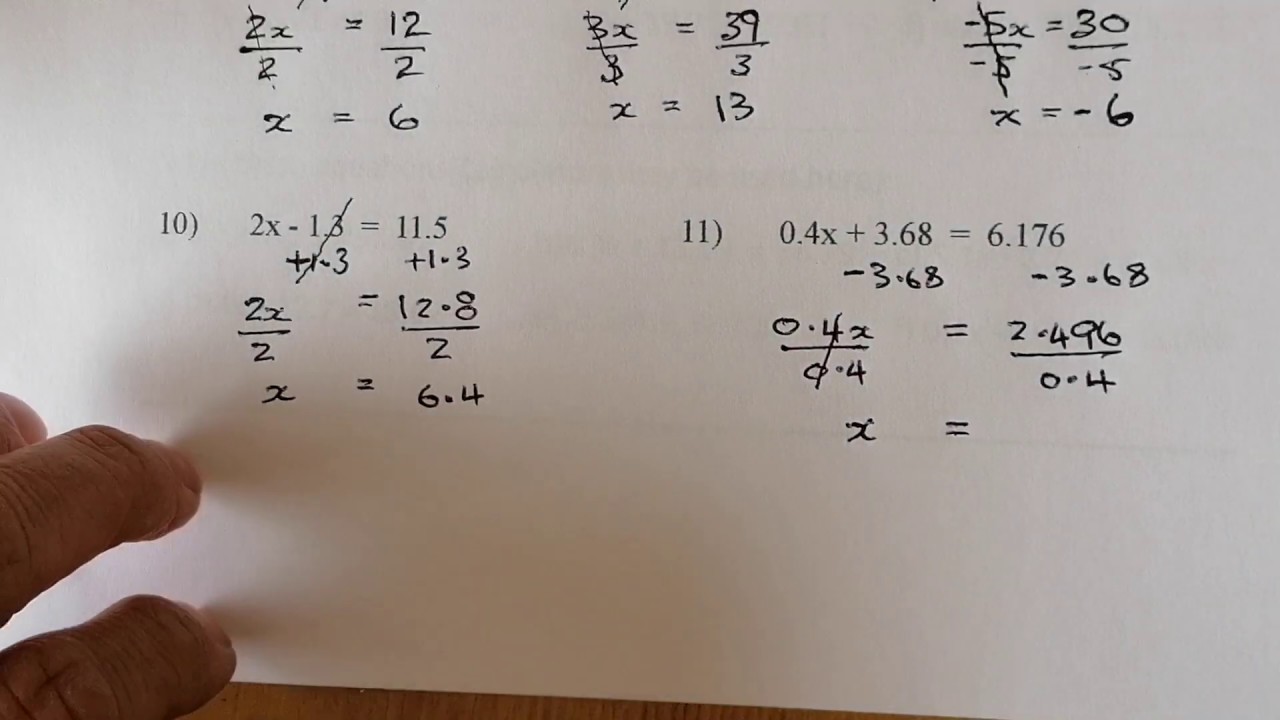 2x = 12 3x = 39 -5x = 30
2 2 3 3 -5 -5
x = 6 x = 13 x = -6
10) 2x - 1.3 = 11.5 11) 0.4x + 3.68 = 6.176
+1.3 +1.3 -3.68 -3.68
2x = 12.8 0.4x = 2.496
2 2 0.4 0.4
x = 6.4 x =